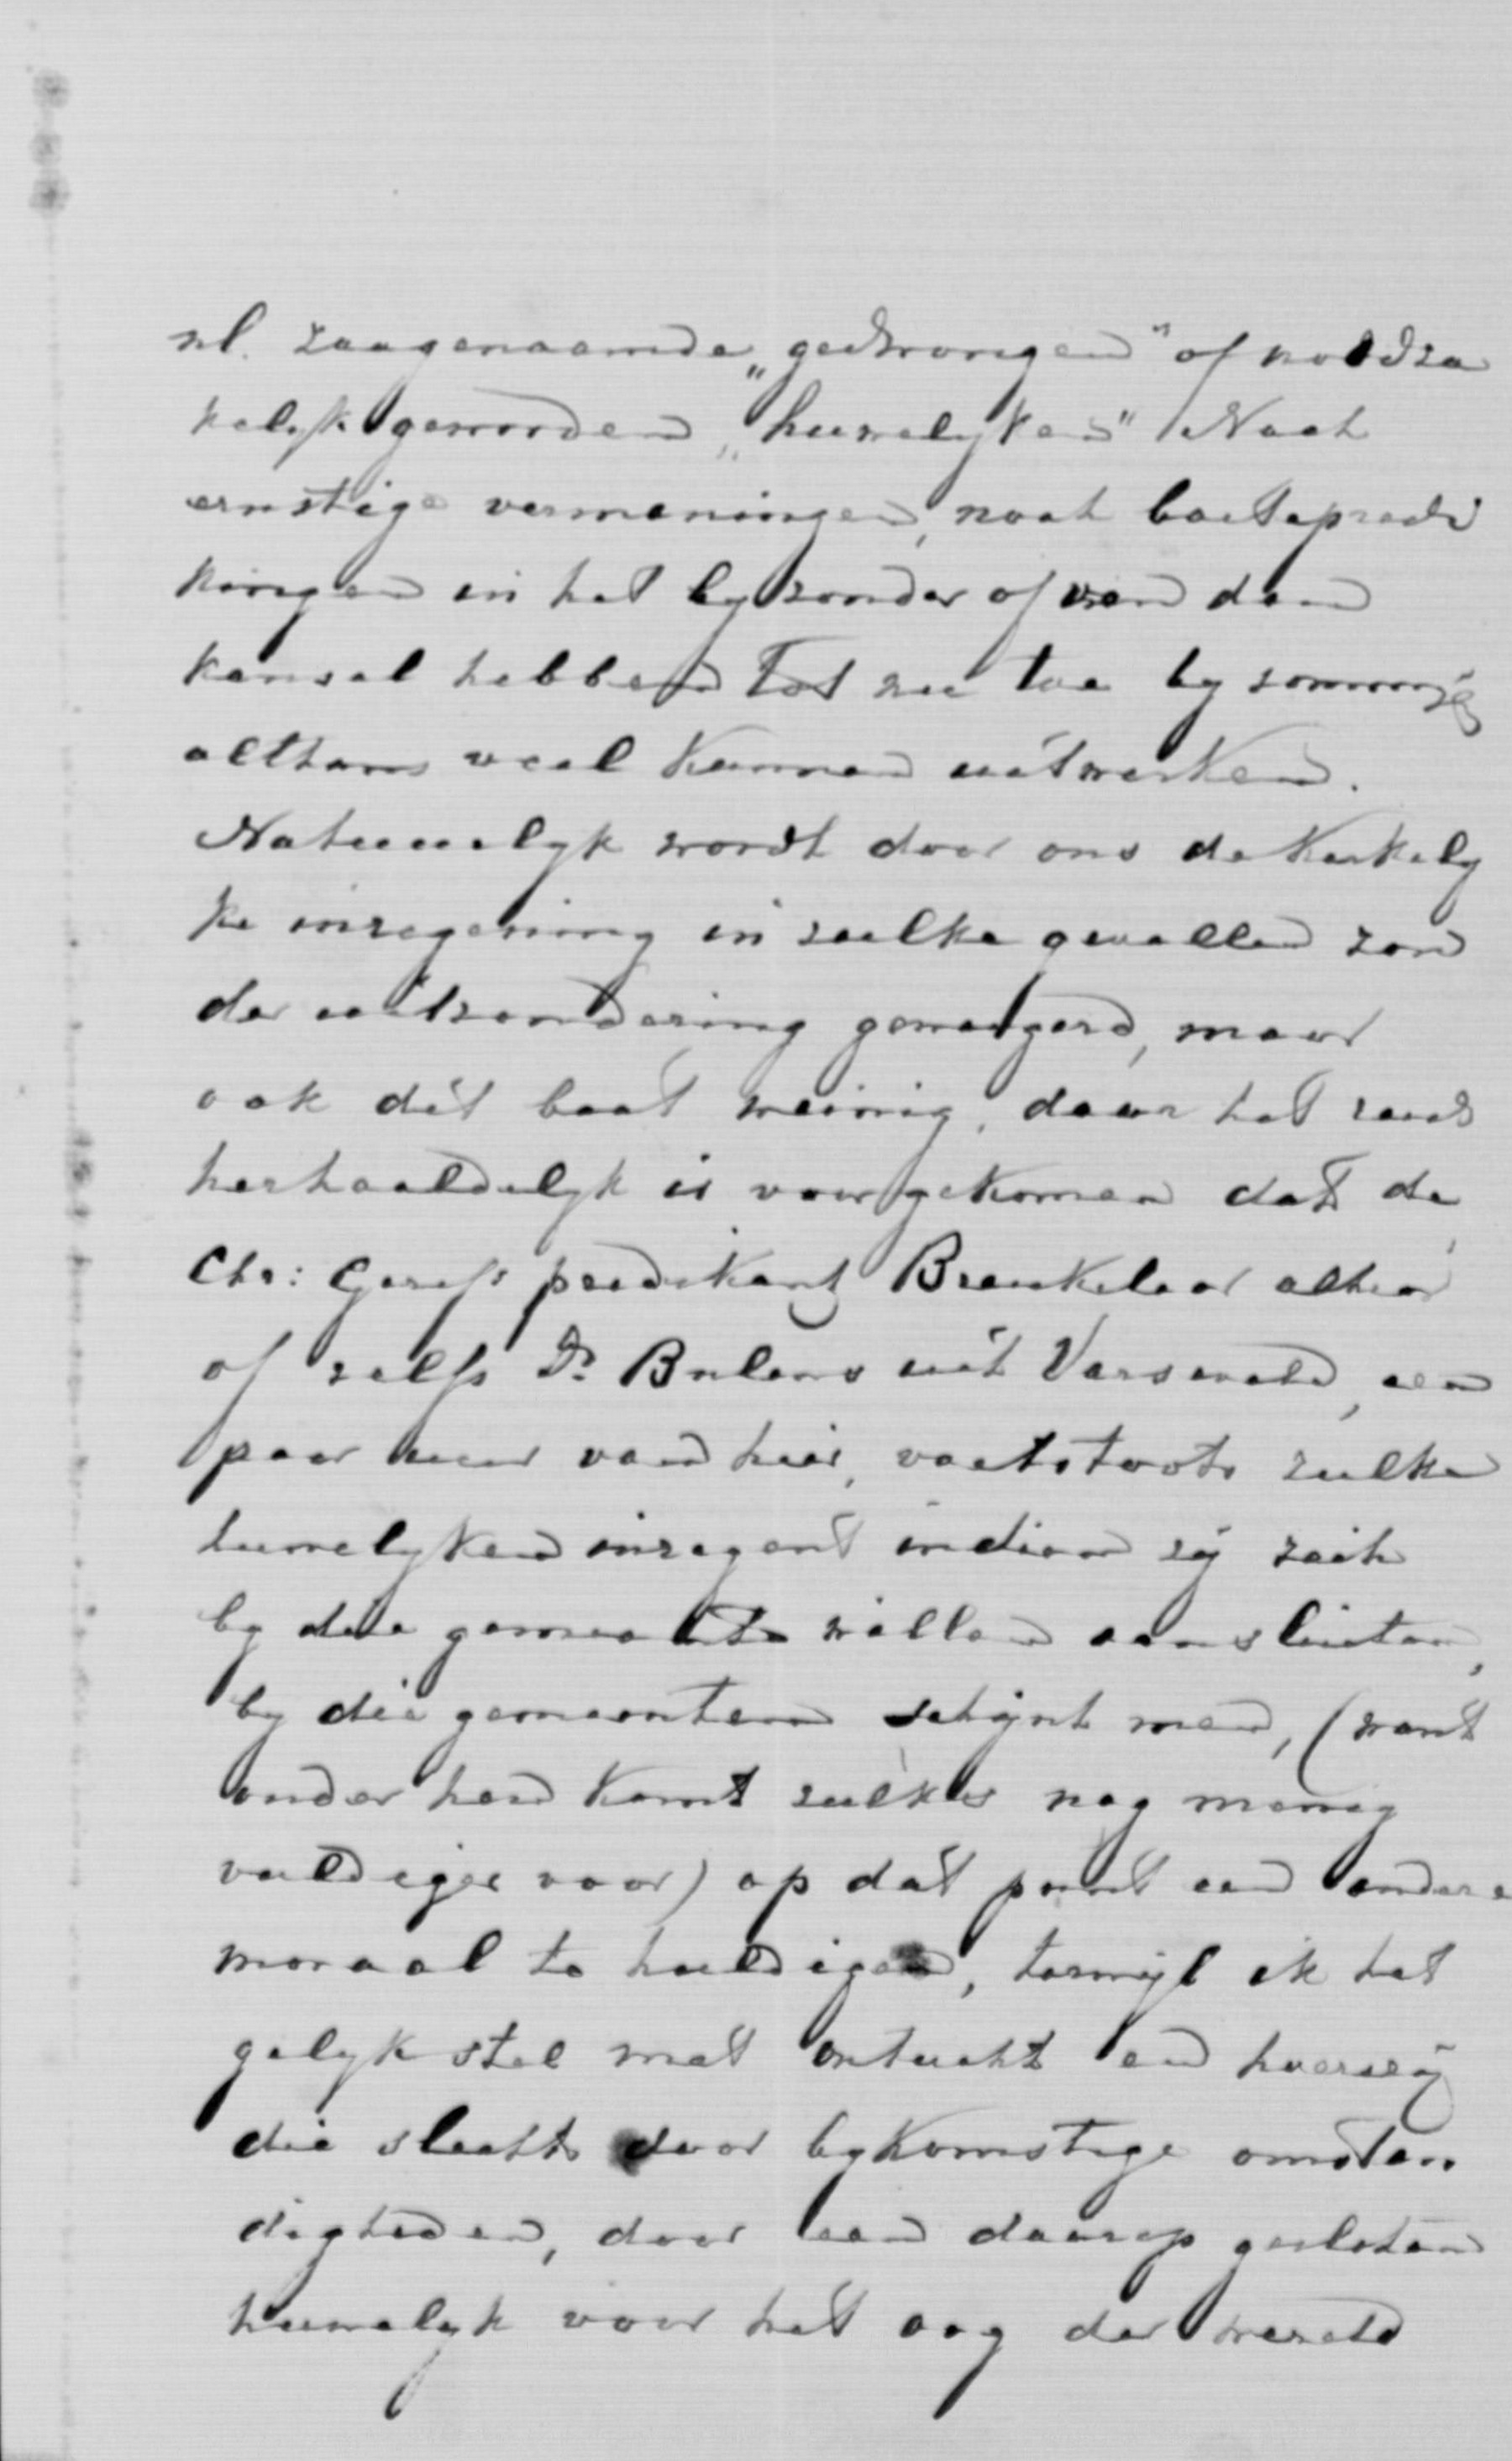 nl. zoogenaamde „gedwongen" of noodza
kelijk geworden „huwelyken" Noch
ernstige vermaningen, noch boetepredi
kingen in het byzonder of van den
kansel hebben tot nu toe by sommige
althans veel kunnen uitwerken.
Natuurlyk wordt door ons de kerkely
ke inzegening in zulke gevallen zon
der uitzondering geweigerd, maar
ook dit baat weinig, daar het reeds
herhaaldelyk is voorgekomen dat de
Chr: Geref. predikant Breukelaar alhier
of zelfs Ds. Bulens uit Varseveld, een
paar uur van hier, voetstoots zulke
huwelyken inzegent indien zij zich
by die gemeente willen aansluiten,
by die gemeenten schijnt men, (want
onder hen komt zulks nog menig
vuldiger voor) op dat punt een andere
moraal te huldigen, terwijl ik het
gelyk stel met ontucht en hoererij
die slechts door bykomstige omstan
digheden, door een daarop gesloten
huwelyk voor het oog der wereld